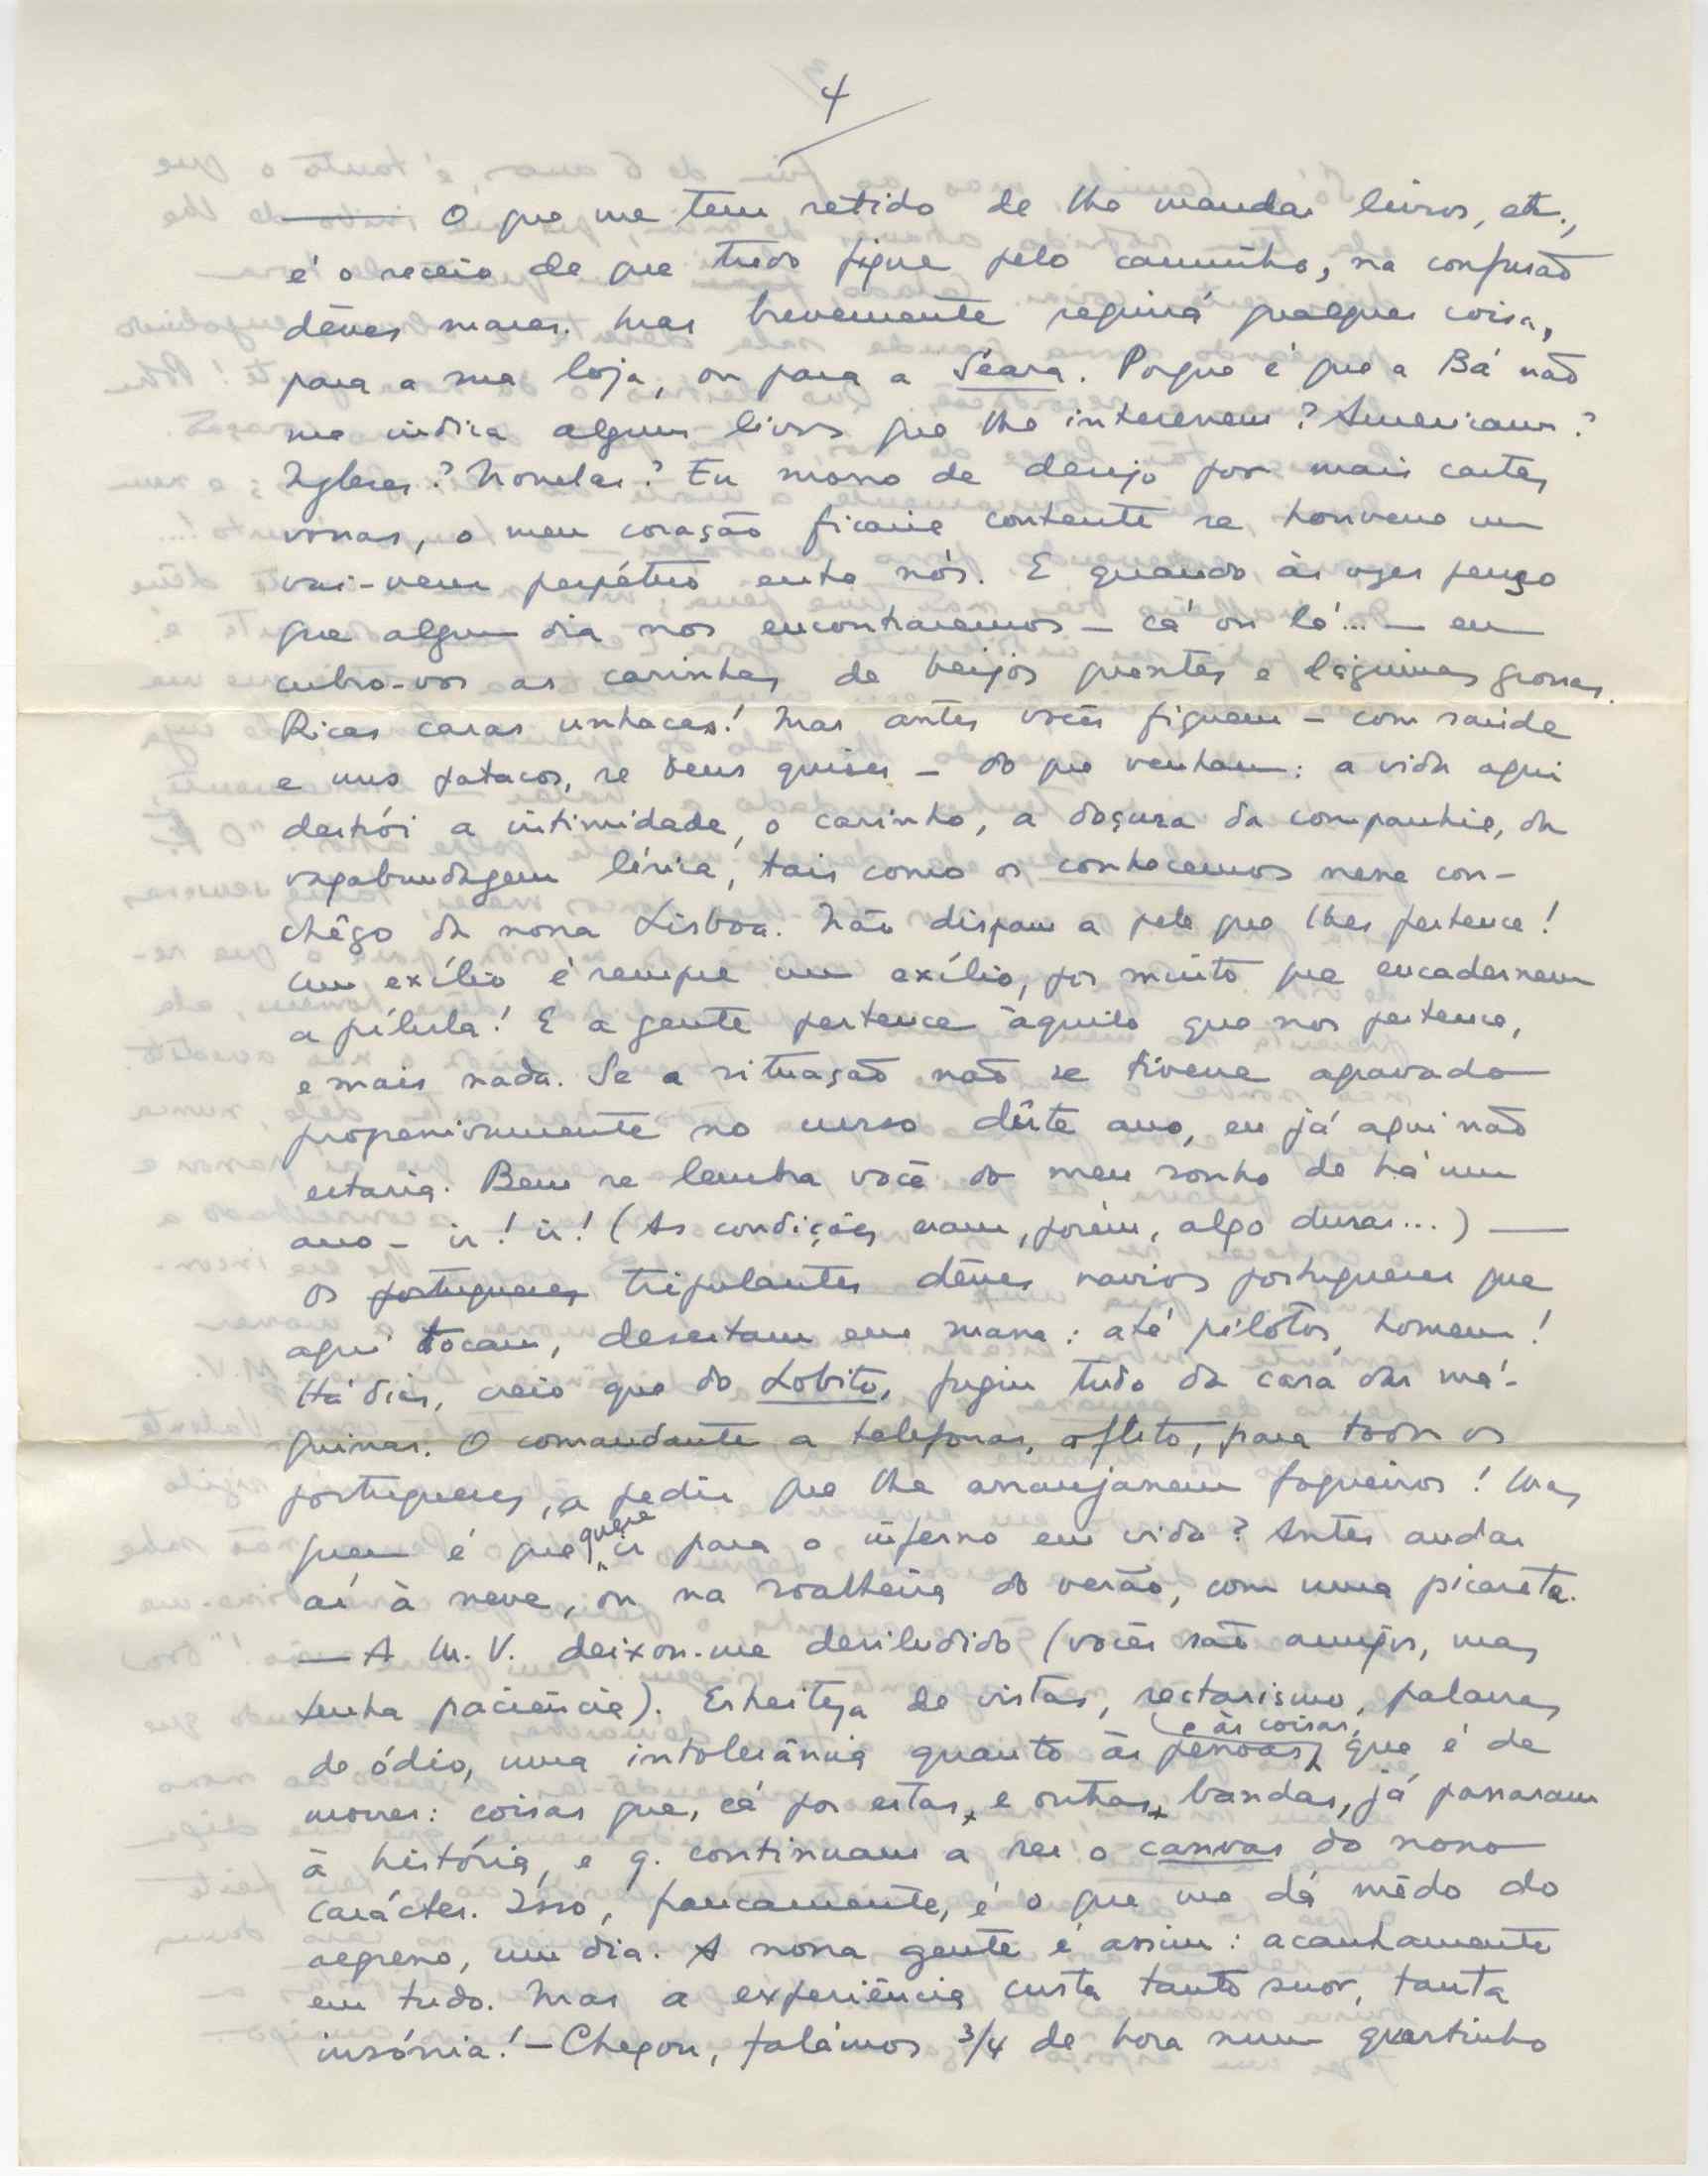 4
— O que me tem retido de lhe mandar livros, etc.,
é o receio de que tudo fique pelo caminho, na confusão
dêsses mares. Mas brevemente seguirá qualquer coisa,
para a sua loja, ou para a Séara. Porque é que a Bá não
me indica alguns livros que lhe interessem? Americanos?
Ingleses? Novelas? Eu morro de desejo por mais cartas
vossas, o meu coração ficaria contente se houvesse um
vai-vem perpétuo entre nós. E quando às vezes penso
que algum dia nos encontraremos — cá ou lá... — eu
cubro-vos as carinhas de beijos quentes e lágrimas grossas.
Ricas caras unhacas! Mas antes vocês fiquem — com saúde
e uns patacos, se Deus quiser — do que venham: a vida aqui
destrói a intimidade, o carinho, a doçura da companhia, da
vagabundagem lírica, tais como os conhecemos nesse con-
chêgo da nossa Lisboa. Não dispam a pele que lhes pertence!
Um exílio é sempre um exílio, por muito que encadernem
a pílula! E a gente pertence àquilo que nos pertence,
e mais nada. Se a situação não se tivesse agravado
progressivamente no curso dêste ano, eu já aqui não
estaria. Bem se lembra você do meu sonho de há um
ano — ir! ir! (As condições eram, porém, algo duras...) —
Os portugueses tripulantes dêsses navios portugueses que
aqui tocam, desertam em massa: até pilotos, homem!
Há dias, creio que do Lobito, fugiu tudo da casa das má-
quinas. O comandante a telefonar, aflito, para todos os
portugueses, a pedir que lhe arranjassem fogueiros! Mas
quem é que quere ir para o inferno em vida? Antes andar
aí à neve, ou na soalheira do verão, com uma picareta.
— A M.V. deixou-me desiludido (vocês são amigos, mas
tenha paciência). Estreiteza de vistas, sectarismo, palavras
de ódio, uma intolerância quanto às pessoas e às coisas, que é de
morrer: coisas que, cá por estas, e outras, bandas, já passaram
à história, e q. continuam a ser o canvas do nosso
carácter. Isso, francamente, é o que me dá mêdo do
regresso, um dia. A nossa gente é assim: acanhamento
em tudo. Mas a experiência custa tanto suor, tanta
insónia! — Chegou, falámos 3/4 de hora num quartinho